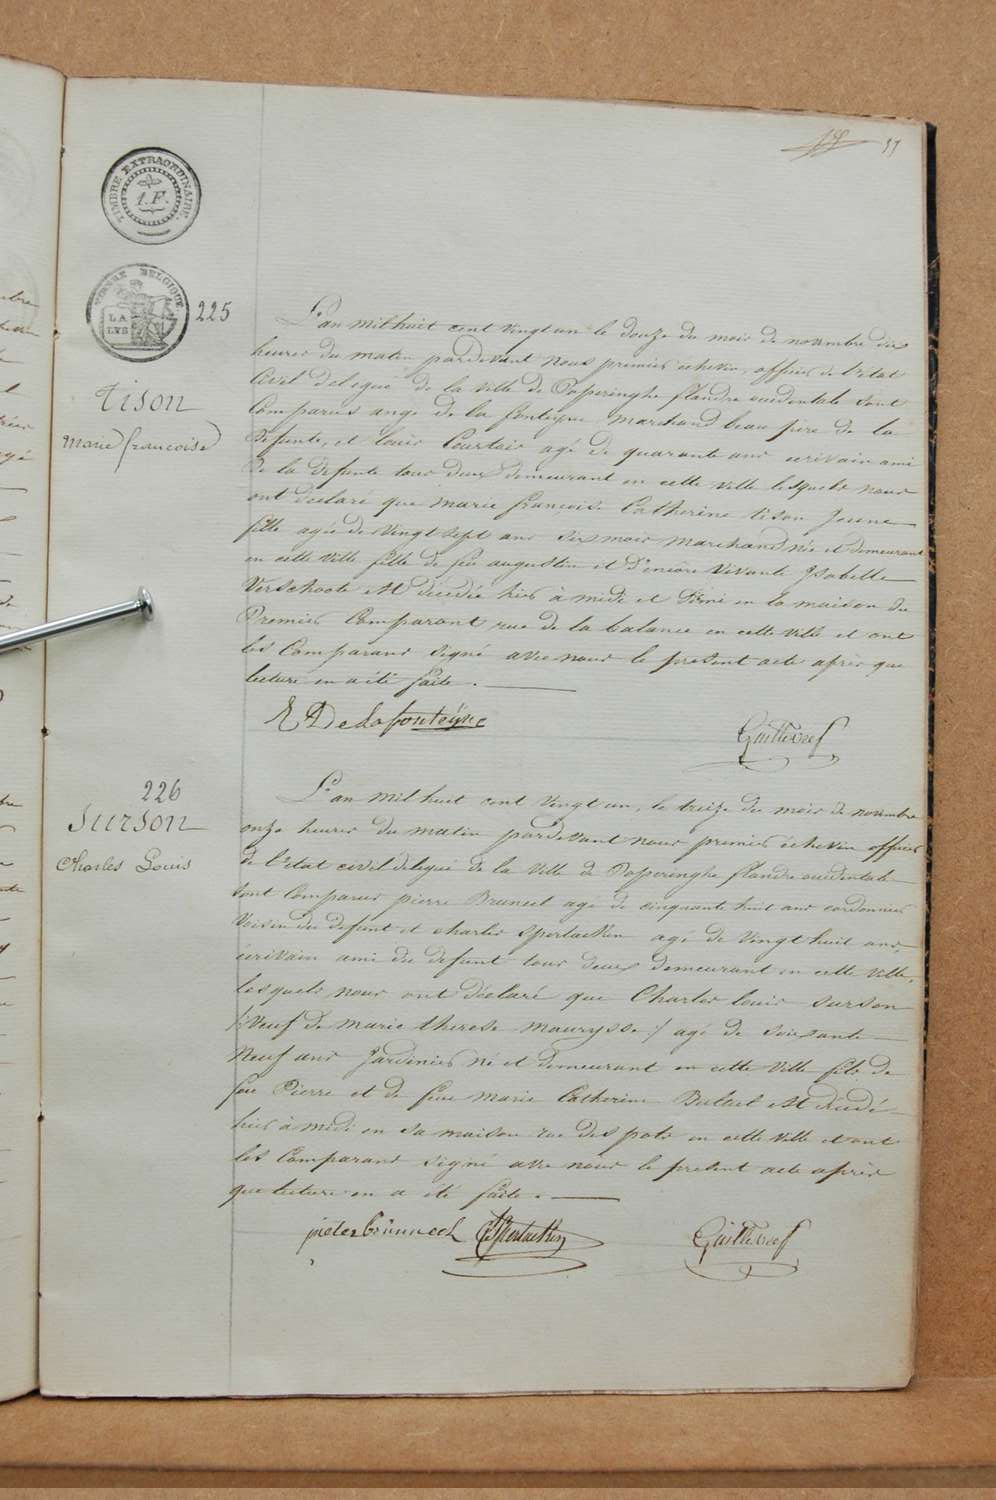 57
TIMBRE EXTRAORDINAIRE
1.F.
TIMBRE BELGIQUE
LA
LYS
225
Tison
Marie françoise
L'an mil huit cent vingt un le douze du mois de novembre dix
heures du matin pardevant nous premier échevin, officier de l'etat
Civil delegué de la ville de Poperinghe flandre occidentale sont
Comparus ange de la fonteyne marchand beau pere de la
Defunte, et louis Courtois agé de quarante ans ecrivain ami
de la defunte tous deux demeurant en cette ville lesquels nous
ont declaré que marie françoise Catherine tison Jeune
fille agée de vingt sept ans six mois marchande née et demeurant
en cette ville fille de feu augustin et d'encore vivante Isabelle
Verschoote est décedée hier à midi et demi en la maison du
Premier Comparant rue de la balance en cette ville et ont
les Comparans signé avec nous le present acte après que
lecture en a été faite.
Delafonteÿne
226
Surson
Charles Louis
L'an mil huit cent vingt un, le treize du mois de novembre
onze heures du matin pardevant nous premier échevin officier
de l'etat civil delegué de la ville de Poperinghe flandre occidentale
sont Comparus pierre Bruneel agé de cinquante huit ans cordonnier
Voisin du defunt et charles Sperlaeken agé de vingt huit ans,
écrivain ami du defunt tous deux demeurant en cette ville,
lesquels nous ont déclaré que Charles louis surson
/: Veuf de marie therese maurysse :/ agé de soixante
Neuf ans Jardinier né et demeurant en cette ville fils de
feu Pierre et de feue marie Catherine est décedé
hier à midi en sa maison rue des pots en cette ville et ont
les Comparans signé avec nous le present acte après
que lecture en a été faite.
pieter brúnneel